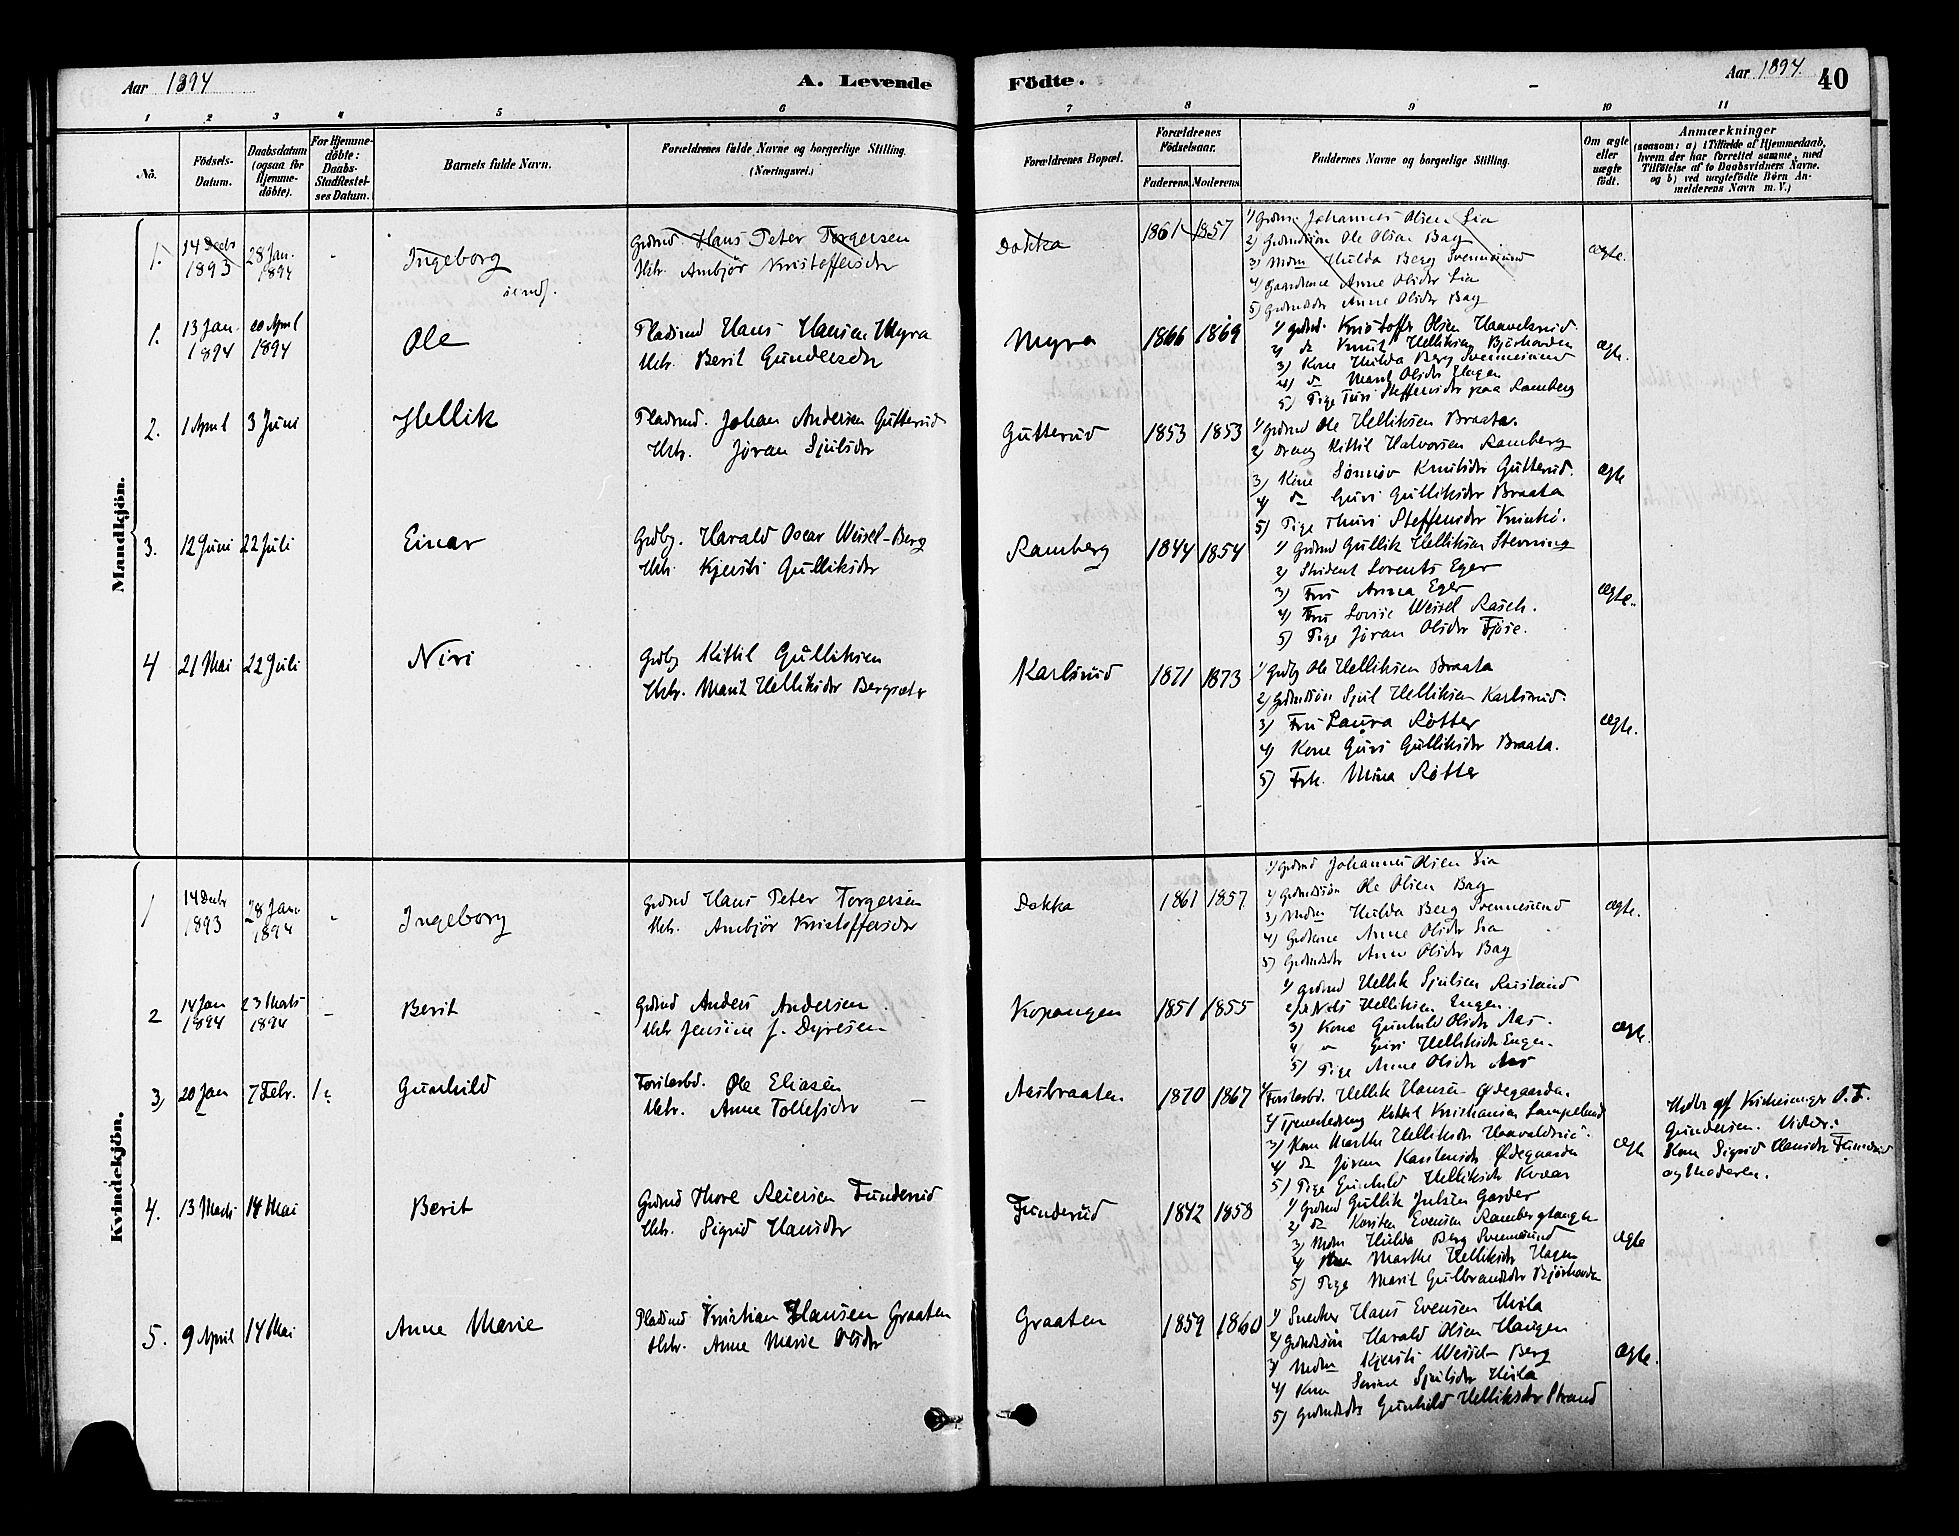 Aar 1894
A. Levende
Födte.
Aar 1894.
40
1 2 3 4 5 6 7 8 9 10 11
No.
Födsels-
Datum.
Daabsdatum
(ogsaa for
Hjemme-
döbte).
For Hjemme-
döbte:
Daabs-
Stadfæstel-
ses Datum.
Barnets fulde Navn.
Forældrenes fulde Navne og borgerlige Stilling.
(Næringsvei.)
Forældrenes Bopæl.
Forældrenes
Födselsaar.
Faderens. Moderens.
Faddernes Navne og borgerlige Stilling.
Om ægte
eller
uægte
födt.
Anmærkninger
(saasom: a) i Tilfælde af Hjemmedaab,
hvem der har forrettet samme, med
Tilföielse af to Daabsvidners Navne.
og b) ved uægtefödte Börn An-
melderens Navn m. V.)
Mandkjön.
1. 14 Decbr 1893
28 Jan. 1894
Ingeborg
Grdmd. Hans Peter Torgersen
Hstr. Ambjör Kristoffersdr
Dokka
1861 1857
1) Grdm. Johannes Olsen Lia
2) Grdmdssön Ole Olsen Bag
3) Mdm Hulda Berg Svennesund
4) Gaardkone Anne Olsdr Lia
5) Grdmdsdtr Anne Olsdr Bag
ægte.
1. 13 Jan. 1894
20 April 1894
Ole
Pladsmd Hans Hansen Myra
Hstr. Berit Gundersdr
Myra
1866 1869
1) Grdmd. Kristoffer Olsen
2) do Knut Helliksen
3) Kone Hulda Berg Svennesund
4) do Marit Olsdr Hagen
5) Pige Turi Steffensdr paa Ramberg
ægte.
2. 1 April
3 Juni
Hellik
Pladsmd. Johan Andersen Gutterud
Hstr. Jøran Sjulsdr
Gutterud
1853 1853
1) Grdmd Ole Helliksen Braata.
2) Dreng Kittil Halvorsen Ramberg
3) Kone Sønnøv Knutsdr Gutterud.
4) do Guri Gulliksdr Braata
5) Pige Thuri Steffensdr
ægte
3. 12 Juni
22 Juli
Einar
Grdbg. Harald Oscar Wessel-Berg
Hstr. Kjersti Gulliksdr
Ramberg
1844 1854
1) Grdmd Gullik Helliksen Stevning
2) Student Lorents Eger
3) Fru Anna Eger
4) Fru Lovise Wessel Rasch.
5) Pige Jøran Olsdr Fjøse.
ægte.
4 21 Mai
22 Juli
Niri
Grdbg Kittil Gulliksen
Hstr. Marit Helliksdr Bergsæter
Karlsrud
1871 1873
1) Grdbg Ole Helliksen Braata
2) Grdmdssön Sjul Helliksen Karlsrud.
3) Fru Laura Røtter
4) Kone Guri Gulliksdr Braata.
5) Frk. Mina Røtter
ægte.
Kvindekjön.
1 14 Decbr 1893
28 Jan. 1894
Ingeborg
Grdmd Hans Peter Torgersen
Hstr. Ambjör Kristoffersdr
Dokka
1861 1857
1) Grdmd Johannes Olsen Lia
2) Grdmdssön Ole Olsen Bag
3) Mdm Hulda Berg Svennesund
4) Grdkone Anne Olsdr Lia
5) Grdmdsdtr Anne Olsdr Bag
ægte.
2 14 Jan 1894
23 Marts 1894
Berit
Grdmd Anders Andersen
Hstr Jensine J. Dyresen
Kopangen
1851 1855
1) Grdmd Hellik Sjulsen Rustand
2) do Nels Helliksen Engen.
3) Kone Gunhild Olsdr Aas.
4) " Guri Helliksdr Engen.
5) Pige Anne Olsdr Aas
ægte.
3, 20 Jan
7 Febr.
Gunhild
Forstarbd. Ole Eliasen
Hstr. Anne Tollefsdr
Aasbraaten
1870 1867
1) Forstarbd. Hellik Hansen Ødegaarden.
2) Tjenestedreng Kittil Kristiansen
3) Kone Marthe Helliksdr
4) do Jøran Karstensdr Ødegaarden
5) Pige Gunhild Helliksdr
ægte
Hdbt af Kirkesanger O. T.
Gundersen. Vidner:
Kone Sigrid Hansdr Funderud
og Moderen.
4. 13 Marts
14 Mai
Berit
Grdmd Thore Reiersen Funderud
Hstr. Sigrid Hansdr
Funderud
1842 1858
1) Grdmd Gullik Julsen Garder
2) do Karsten Evensen Rambergtangen
3) Mdm Hulda Berg Svennesund
4) Kone Marthe Helliksdr Hagen
5) Pige Marit Gulbrandsdr
ægte
5. 9 April
14 Mai
Anne Marie
Pladsmd Kristian Hansen Graaten
Hstr. Anne Marie Olsdr
Graaten
1859 1860
1) Snecker Hans Evensen Hvila
2) Grdmdssön Harald Olsen Haugen
3) Mdm Kjersti Wessel-Berg
4) Kone Serine Sjulsdr Hvila
5) Grdmdsdtr Gunhild Helliksdr Strand
ægte.